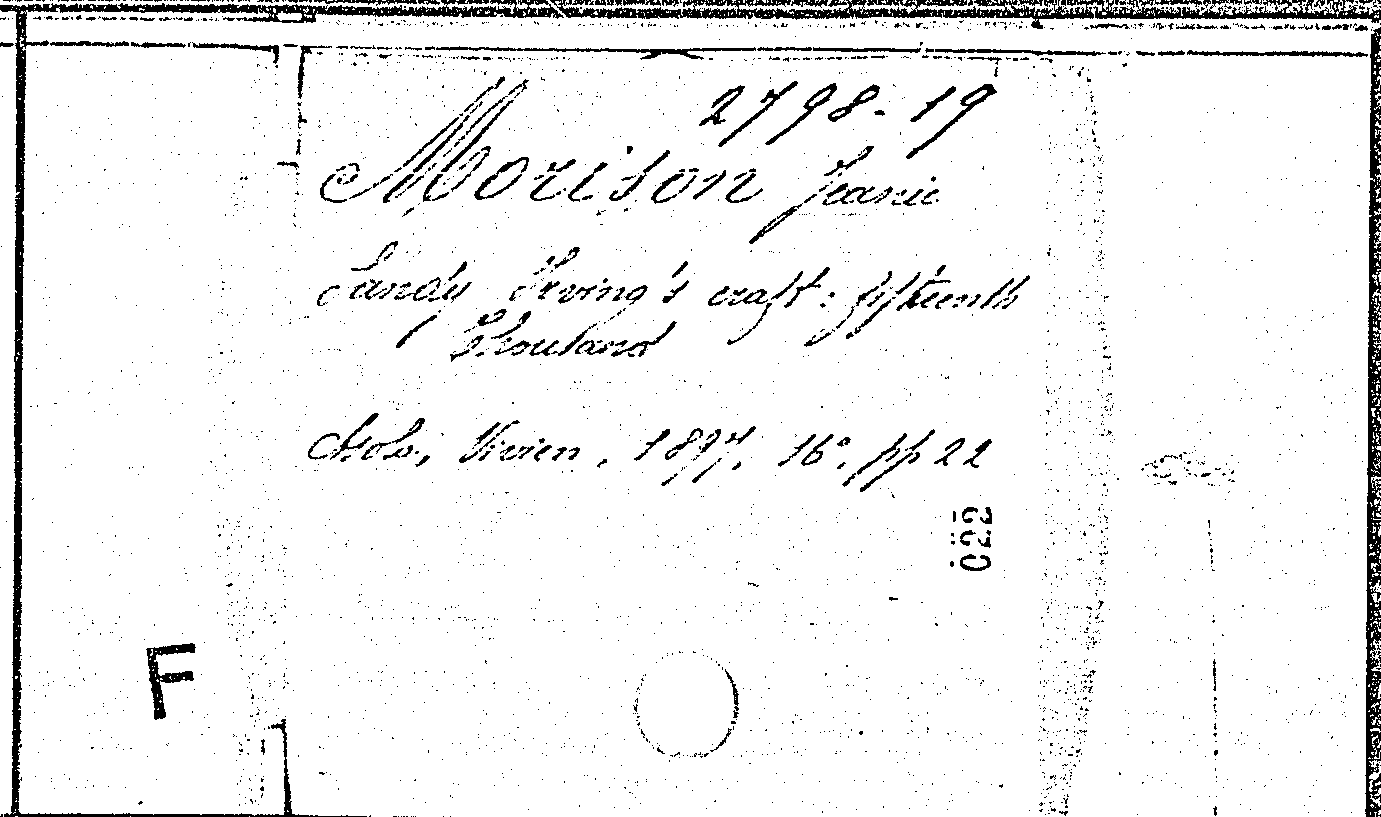 2798-19
Morison Jeanie
Sandy Irving's craft: fifteenth
thousand
Vivien, 1897, 16°, pp 22
022
F